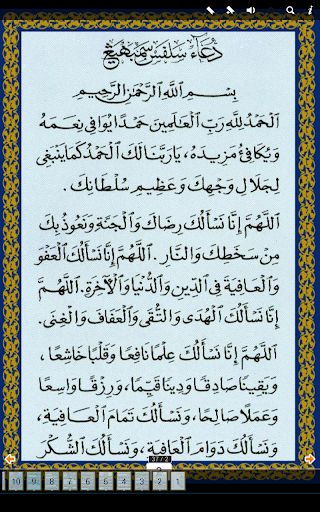 دُعَاءُ سَلْفَسْ سَمْبَهْيَڠْ
بِسْمِ ٱللَّهِ ٱلرَّحْمَٰنِ ٱلرَّحِيمِ
ٱلْحَمْدُ لِلَّهِ رَبِّ ٱلْعَٰلَمِينَ حَمْدًا يُوَافِي نِعَمَهُ
وَيُكَافِئُ مَزِيدَهُ، يَا رَبَّنَا لَكَ ٱلْحَمْدُ كَمَا يَنْبَغِي
لِجَلَالِ وَجْهِكَ وَعَظِيمِ سُلْطَانِكَ.
ٱللَّهُمَّ إِنَّا نَسْأَلُكَ رِضَاكَ وَٱلْجَنَّةَ وَنَعُوذُ بِكَ
مِنْ سَخَطِكَ وَٱلنَّارِ. ٱللَّهُمَّ إِنَّا نَسْأَلُكَ ٱلْعَفْوَ
وَٱلْعَافِيَةَ فِي ٱلدِّينِ وَٱلدُّنْيَا وَٱلْآخِرَةِ. ٱللَّهُمَّ
إِنَّا نَسْأَلُكَ ٱلْهُدَى وَٱلتُّقَى وَٱلْعَفَافَ وَٱلْغِنَى.
ٱللَّهُمَّ إِنَّا نَسْأَلُكَ عِلْمًا نَافِعًا وَقَلْبًا خَاشِعًا،
وَيَقِينًا صَادِقًا وَدِينًا قَيِّمًا، وَرِزْقًا وَاسِعًا
وَعَمَلًا صَالِحًا، وَنَسْأَلُكَ تَمَامَ ٱلْعَافِيَةِ،
وَنَسْأَلُكَ دَوَامَ ٱلْعَافِيَةِ، وَنَسْأَلُكَ ٱلشُّكْرَ
37 / 2
10 9 8 7 6 5 4 3 2 1